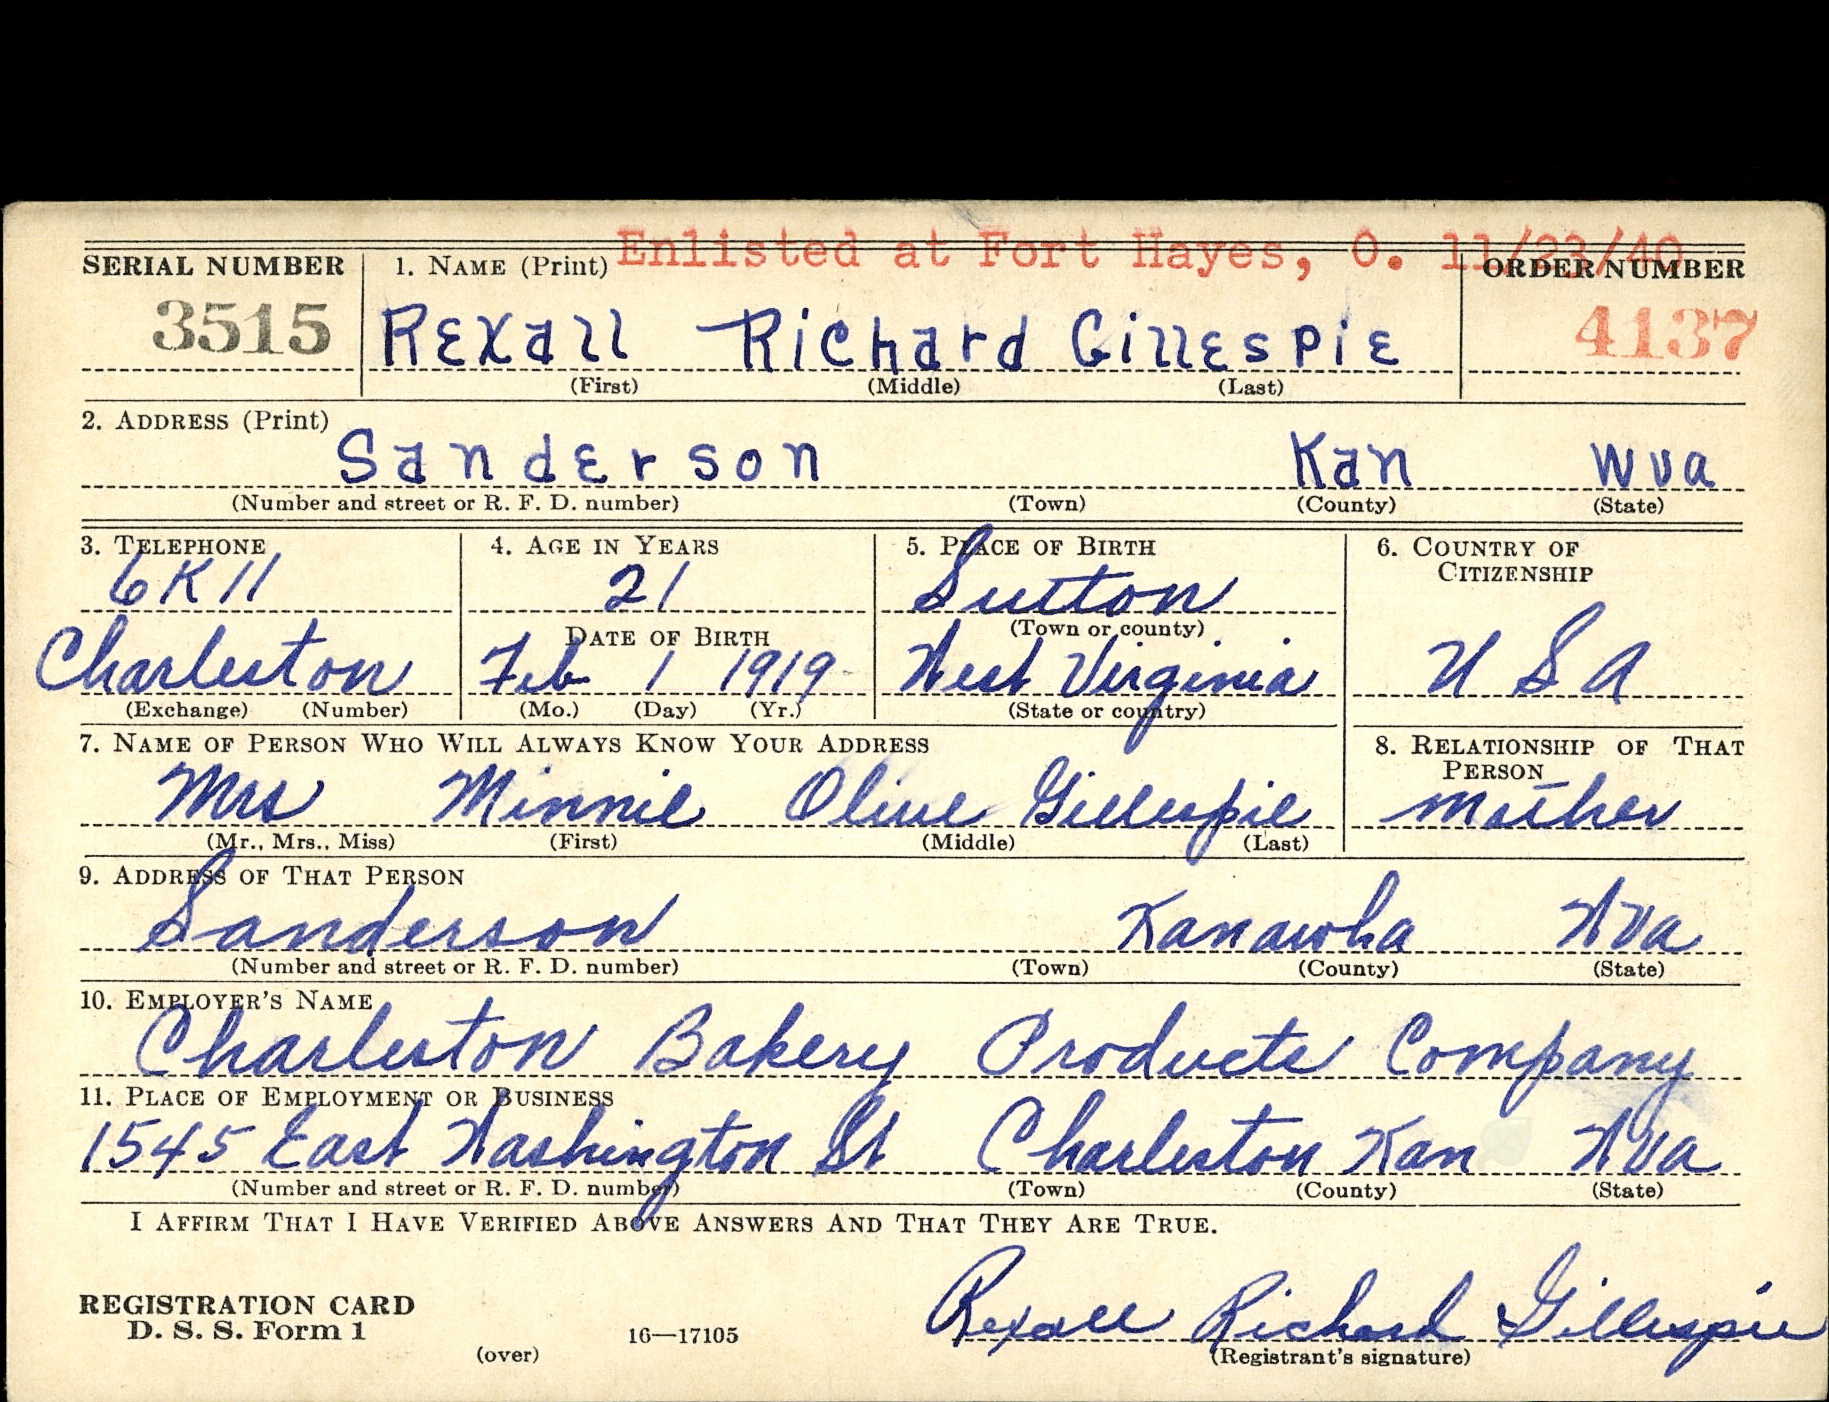 Enlisted at Fort Hayes, O. 11/23/40
SERIAL NUMBER 1. NAME (Print) ORDER NUMBER
3515 Rexall Richard Gillespie 4137
(First) (Middle) (Last)
2. ADDRESS (Print)
Sanderson Kan Wva
(Number and street or R. F. D. number) (Town) (County) (State)
3. TELEPHONE 4. AGE IN YEARS 5. PLACE OF BIRTH 6. COUNTRY OF CITIZENSHIP
6K11 21 Sutton
DATE OF BIRTH (Town or county)
Charleston Feb 1 1919 West Virginia U S A
(Exchange) (Number) (Mo.) (Day) (Yr.) (State or country)
7. NAME OF PERSON WHO WILL ALWAYS KNOW YOUR ADDRESS 8. RELATIONSHIP OF THAT PERSON
Mrs Minnie Olive Gillespie Mother
(Mr., Mrs., Miss) (First) (Middle) (Last)
9. ADDRESS OF THAT PERSON
Sanderson Kanawha Wva
(Number and street or R. F. D. number) (Town) (County) (State)
10. EMPLOYER'S NAME
Charleston Bakery Products Company
11. PLACE OF EMPLOYMENT OR BUSINESS
1545 East Washington St Charleston Kan Wva
(Number and street or R. F. D. number) (Town) (County) (State)
I AFFIRM THAT I HAVE VERIFIED ABOVE ANSWERS AND THAT THEY ARE TRUE.
REGISTRATION CARD
D. S. S. Form 1 16—17105 Rexall Richard Gillespie
(over) (Registrant's signature)